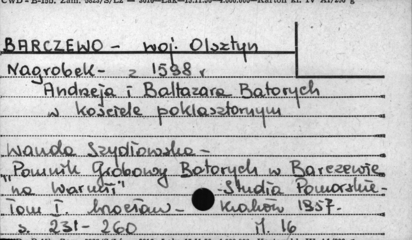 BARCZEWO - woj. Olsztyn
Nagrobek - z 1598 r
Andrzeja i Baltazara Batorych
w kościele poklasztornym
Wanda Szydłowska -
"Pomnik Grobowy Batorych w Barczewie
na Warmii" - Studia Pomorskie -
Tom I. Wrocław - Kraków 1957.
s. 231 - 260 il. 16